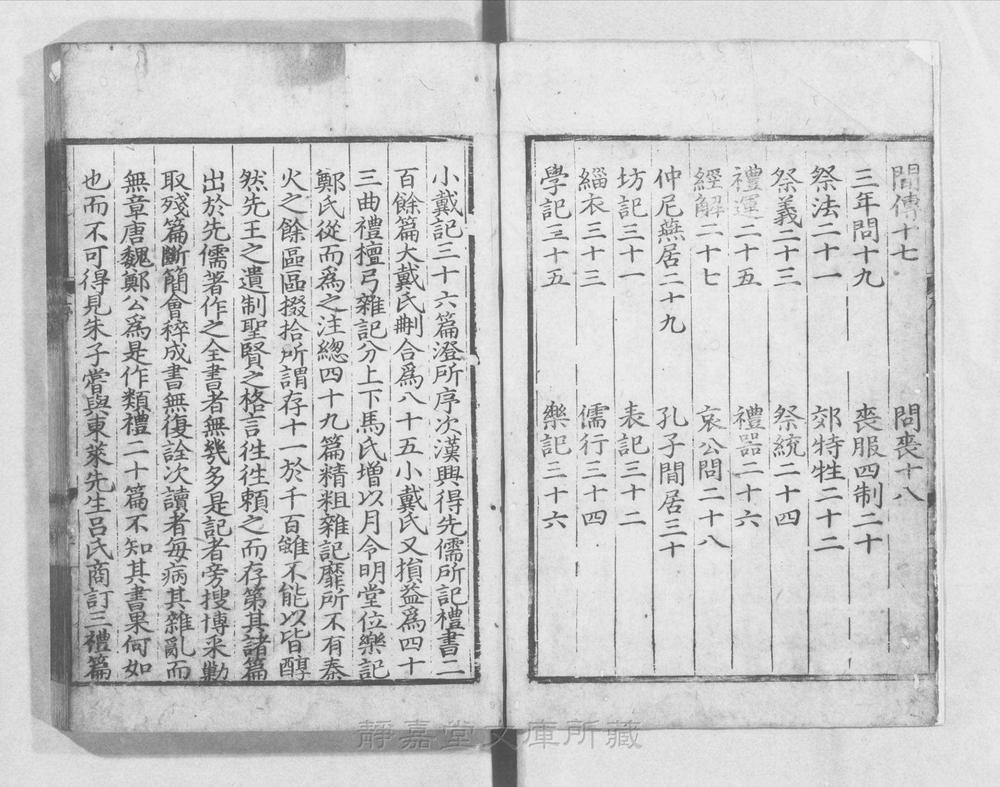 間傳十七　問喪十八
三年問十九　喪服四制二十
祭法二十一　郊特牲二十二
祭義二十三　祭統二十四
禮運二十五　禮器二十六
經解二十七　哀公問二十八
仲尼燕居二十九　孔子閒居三十
坊記三十一　表記三十二
緇衣三十三　儒行三十四
學記三十五　樂記三十六
小戴記三十六篇澄所序次漢興得先儒所記禮書二
百餘篇大戴氏刪合爲八十五小戴氏又損益爲四十
三曲禮檀弓雜記分上下馬氏增以月令明堂位樂記
鄭氏從而爲之注總四十九篇精粗雜記靡所不有秦
火之餘區區掇拾所謂存十一於千百雖不能以皆醇
然先王之遺制聖賢之格言徃徃頼之而存第其諸篇
出於先儒著作之全書者無幾多是記者旁搜博采勦
取殘篇斷簡會稡成書無復詮次讀者每病其雜亂而
無章唐魏鄭公爲是作類禮二十篇不知其書果何如
也而不可得見朱子嘗與東萊先生呂氏商訂三禮篇
靜嘉堂文庫所藏